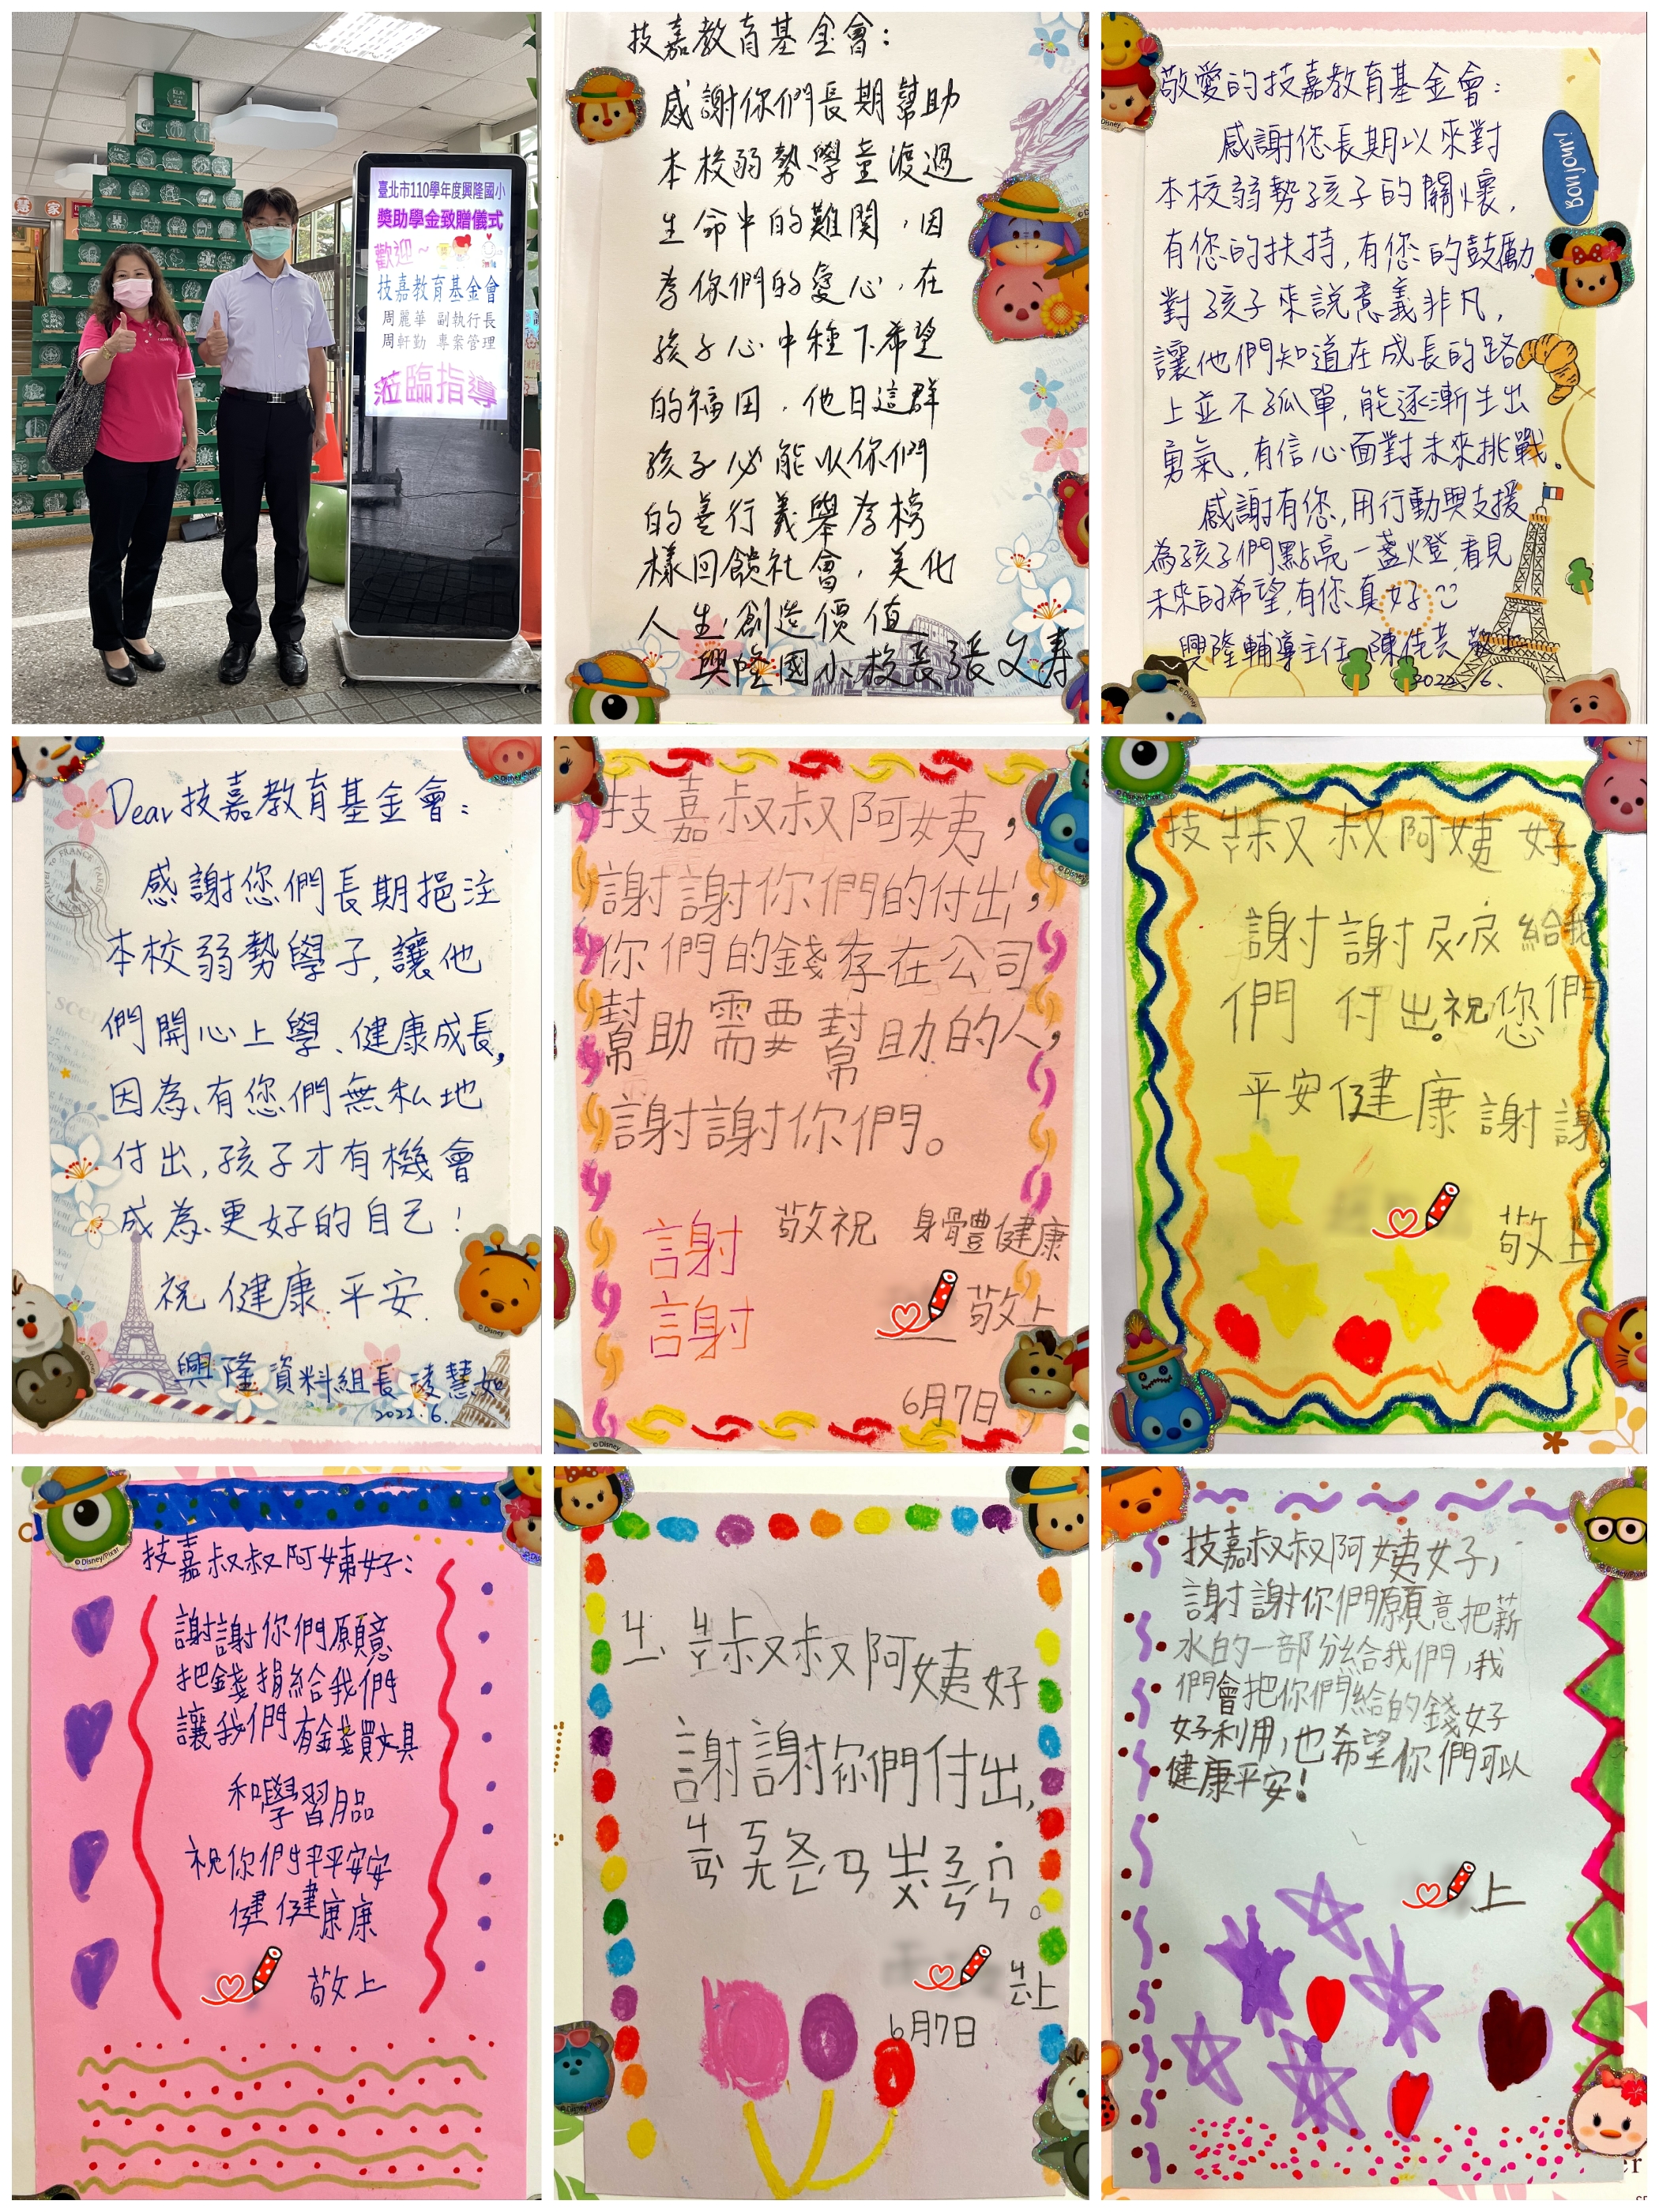 臺北市110學年度興隆國小
獎助學金致贈儀式
歡迎~
技嘉教育基金會
周麗華 副執行長
周軒勤 專案管理
蒞臨指導
技嘉教育基金會：
感謝你們長期幫助
本校弱勢學童渡過
生命中的難關，因
為你們的愛心，在
孩子心中種下希望
的福田，他日這群
孩子必能以你們
的善行義舉為榜
樣回饋社會，美化
人生，創造價值
興隆國小校長張文壽
敬愛的技嘉教育基金會：
感謝您長期以來對
本校弱勢孩子的關懷，
有您的扶持，有您的鼓勵，
對孩子來說意義非凡，
讓他們知道在成長的路
上並不孤單，能逐漸生出
勇氣，有信心面對未來挑戰。
感謝有您，用行動與支援
為孩子們點亮一盞燈，看見
未來的希望，有您真好
興隆輔導主任 陳佳芸 敬上
2022. 6.
Bonjour!
Dear 技嘉教育基金會：
感謝您們長期挹注
本校弱勢學子，讓他
們開心上學、健康成長，
因為有您們無私地
付出，孩子才有機會
成為更好的自己！
祝 健康 平安
興隆資料組長 凌慧如
2022. 6.
技嘉叔叔阿姨，
謝謝你們的付出，
你們的錢存在公司
幫助需要幫助的人，
謝謝你們。
敬祝 身體健康
謝
謝
敬上
6月7日
技ㄐㄧㄚ叔叔阿姨好
謝謝ㄋㄧㄋㄧˇ給我
們付出。祝您們
平安健康謝謝
敬上
技嘉叔叔阿姨好：
謝謝你們願意
把錢捐給我們
讓我們有錢買文具
和學習用品
祝你們平平安安
健健康康
敬上
ㄐㄧˋㄐㄧㄚ叔叔阿姨好
謝謝你們付出，
敬上
6月7日
技嘉叔叔阿姨好，
謝謝你們願意把薪
水的一部分給我們，我
們會把你們給的錢好
好利用，也希望你們可以
健康平安！
上